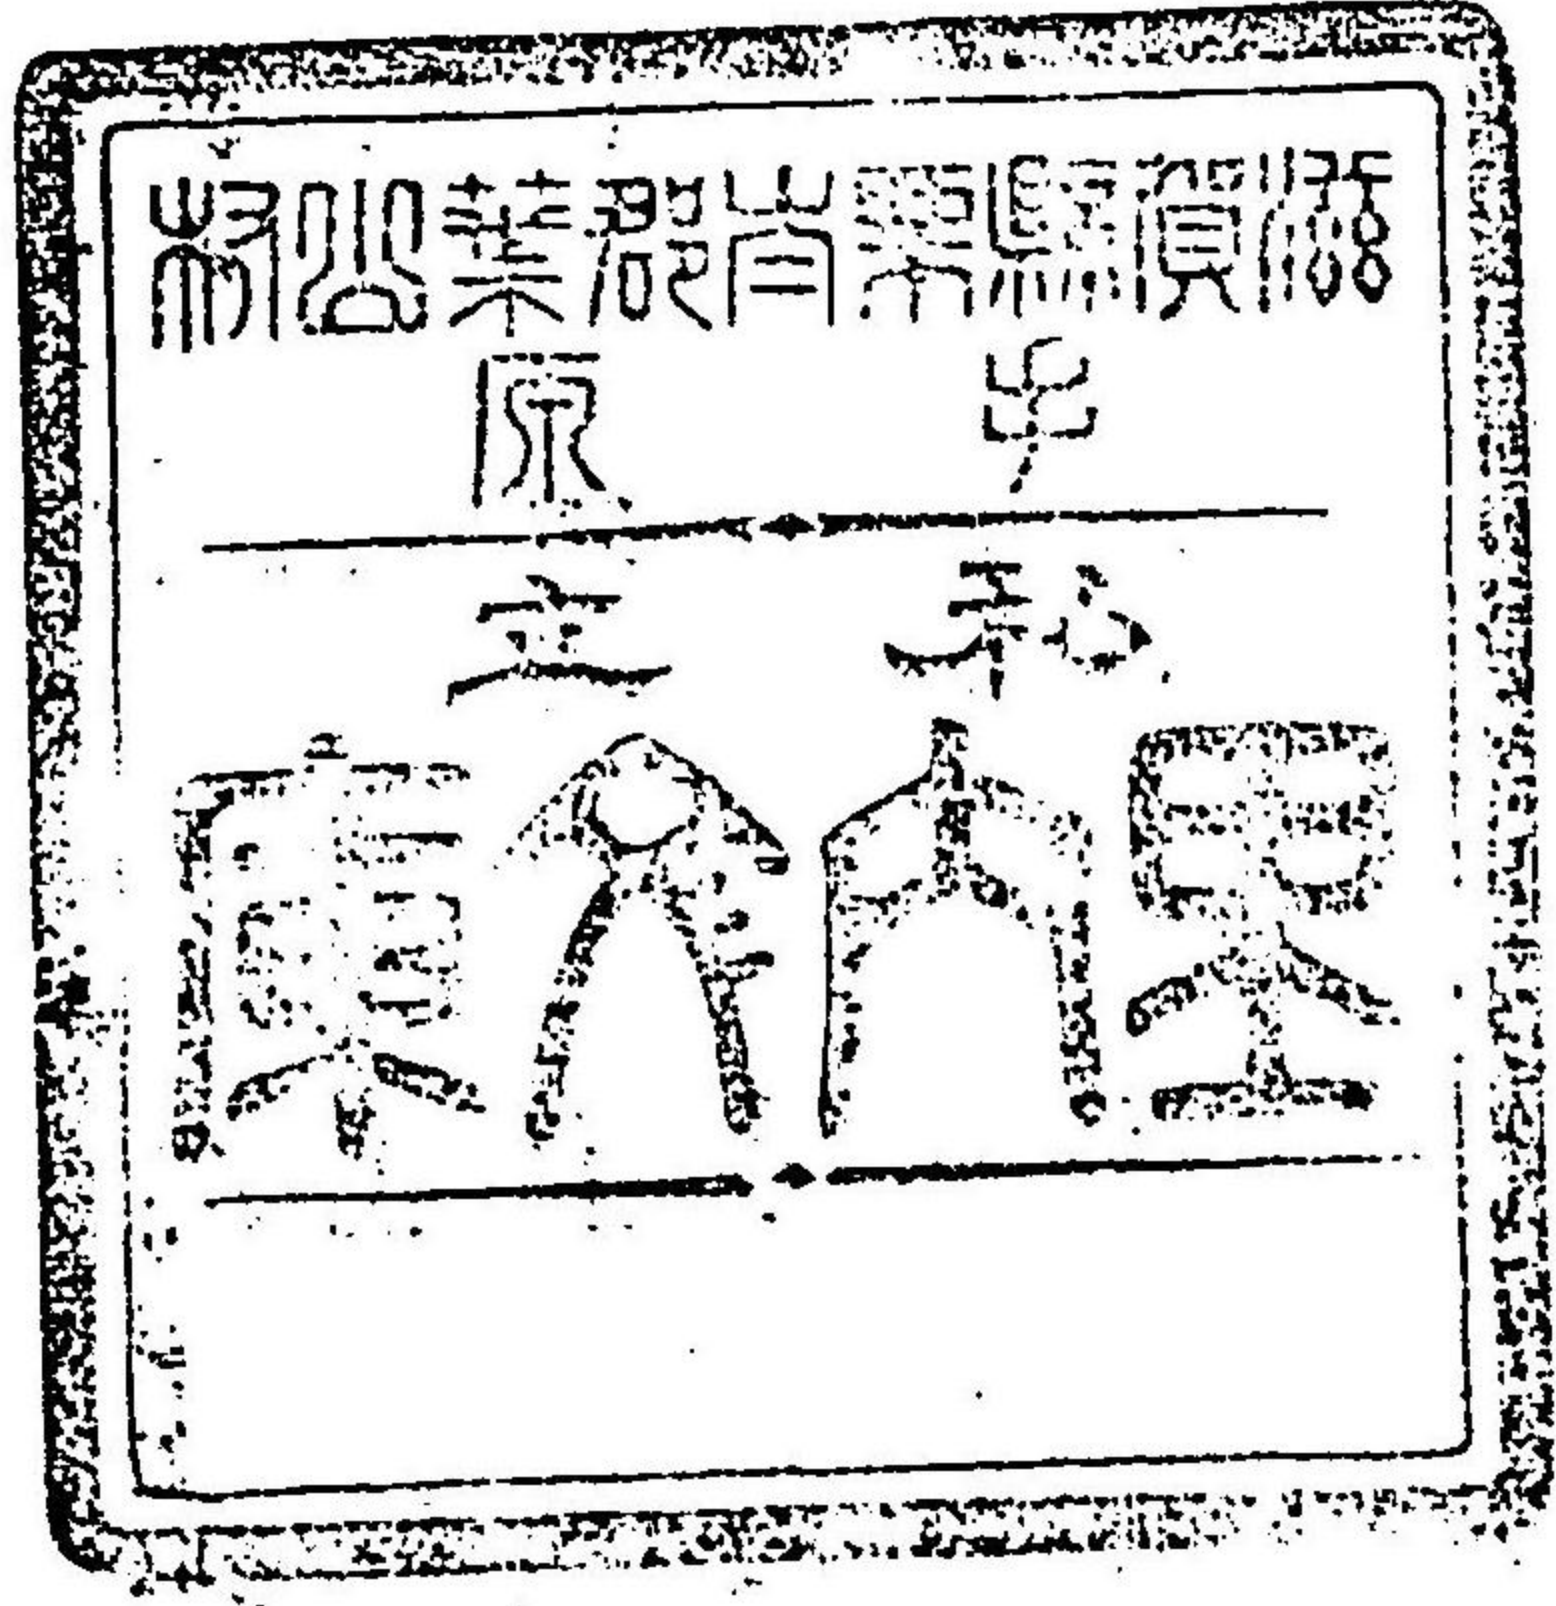 滋賀縣栗太郡葉山村
手原
私立
里内文庫